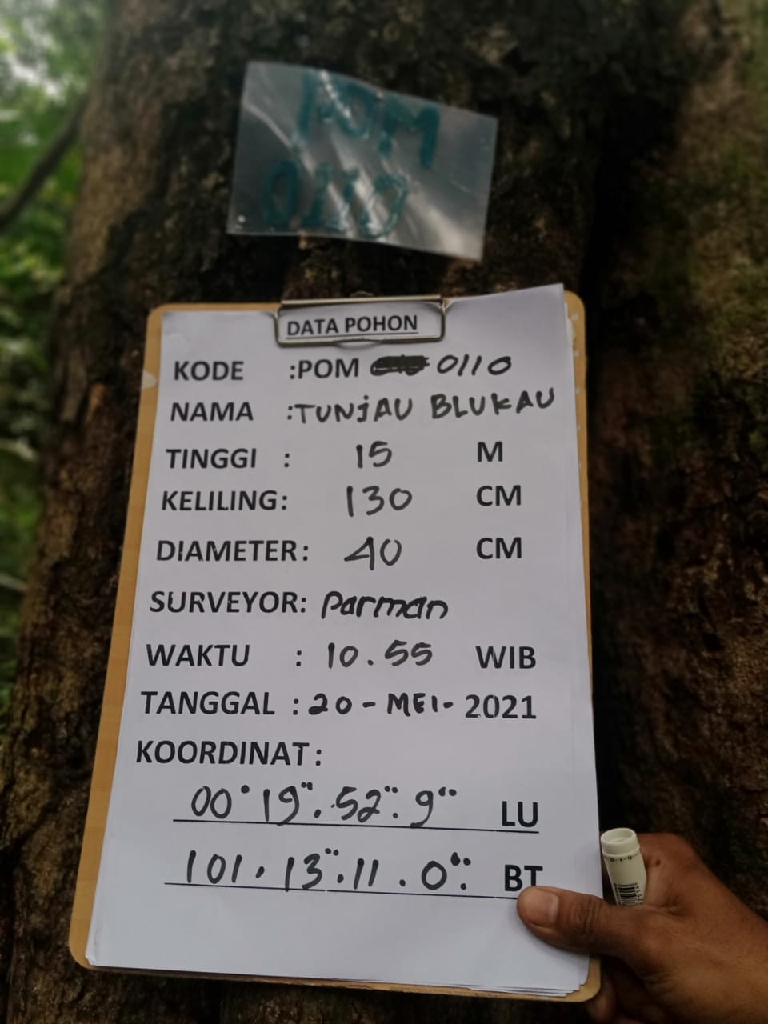 POM
0110
DATA POHON
KODE :POM 0110
NAMA :TUNJAU BLUKAU
TINGGI : 15 M
KELILING: 130 CM
DIAMETER: 40 CM
SURVEYOR: Parman
WAKTU : 10.55 WIB
TANGGAL : 20 - MEI - 2021
KOORDINAT:
00° 19". 52". 9" LU
101. 13". 11. 0". BT